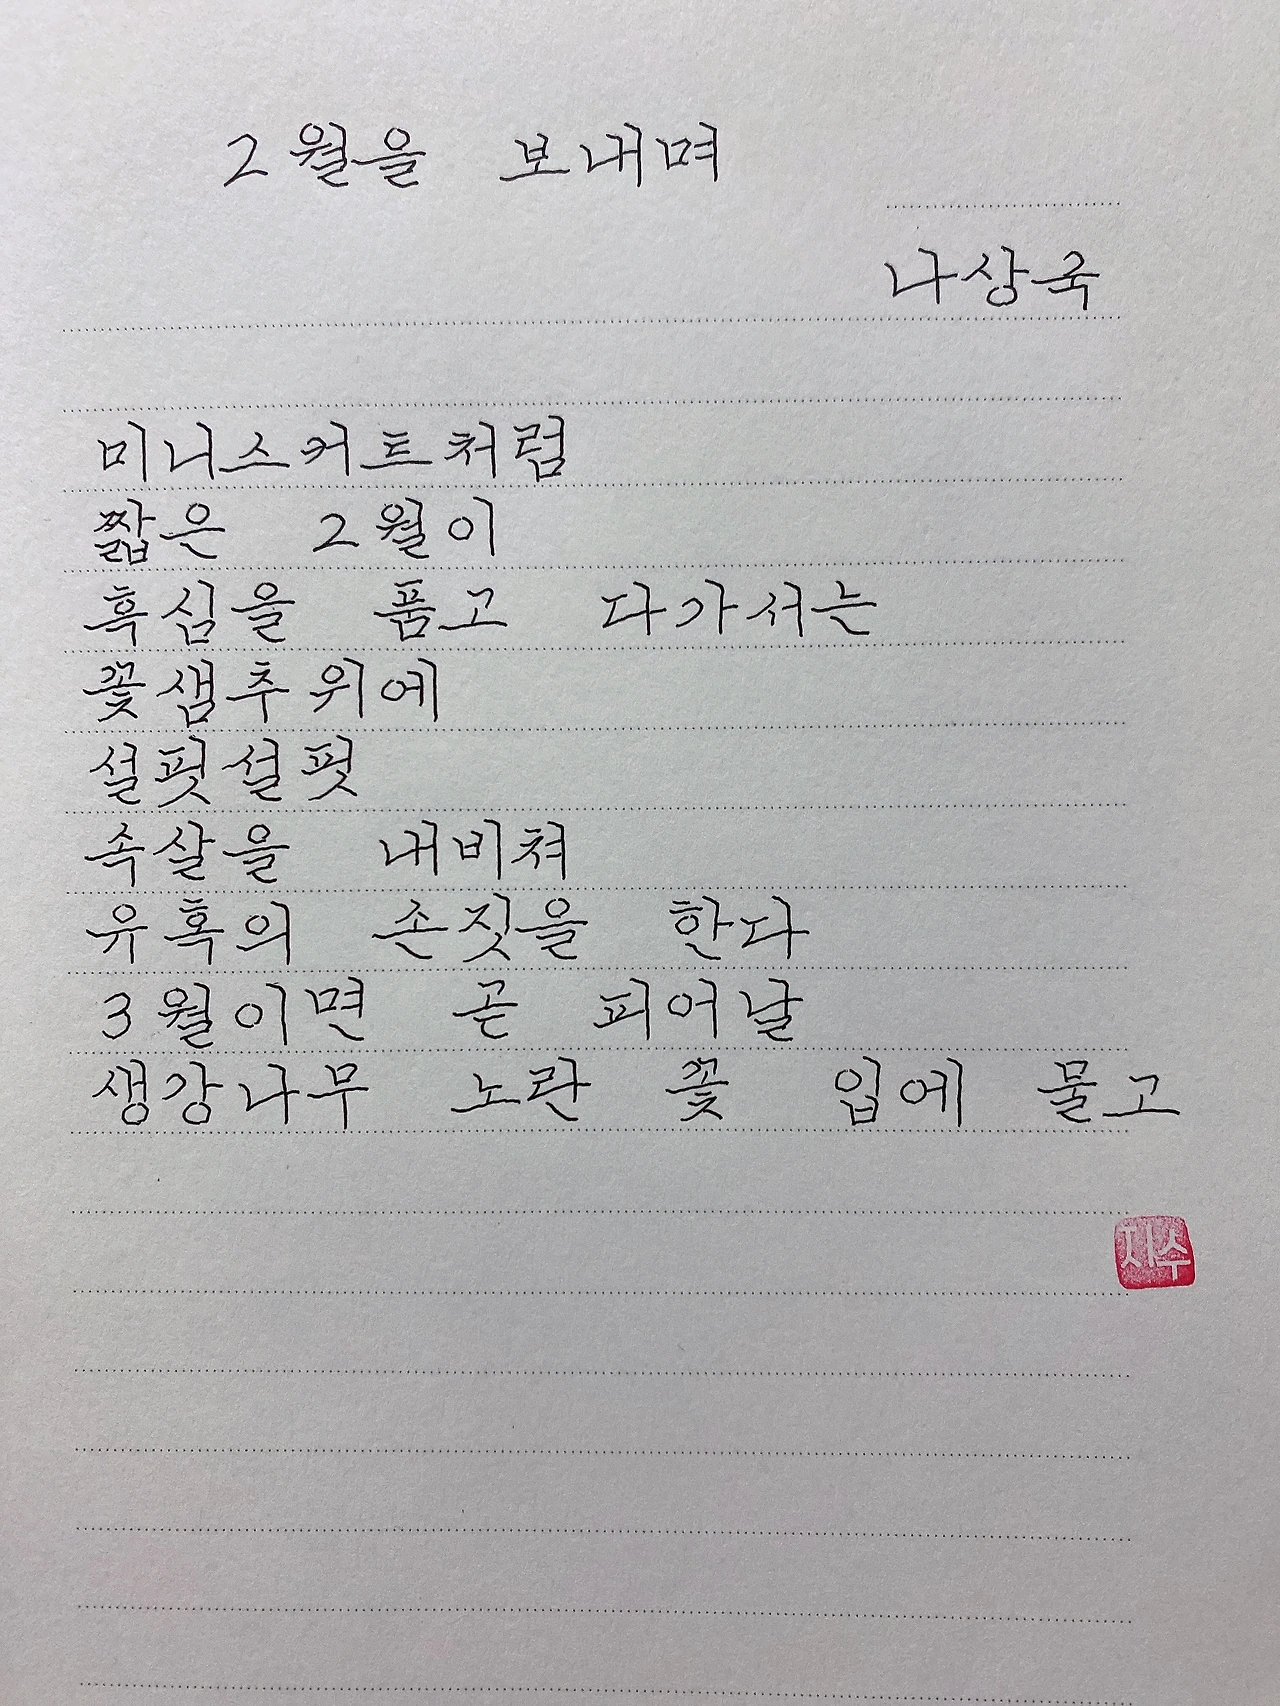 2월을 보내며
나상국
미니스커트처럼
짧은 2월이
흑심을 품고 다가서는
꽃샘추위에
설핏설핏
속살을 내비쳐
유혹의 손짓을 한다
3월이면 곧 피어날
생강나무 노란 꽃 입에 물고
지수